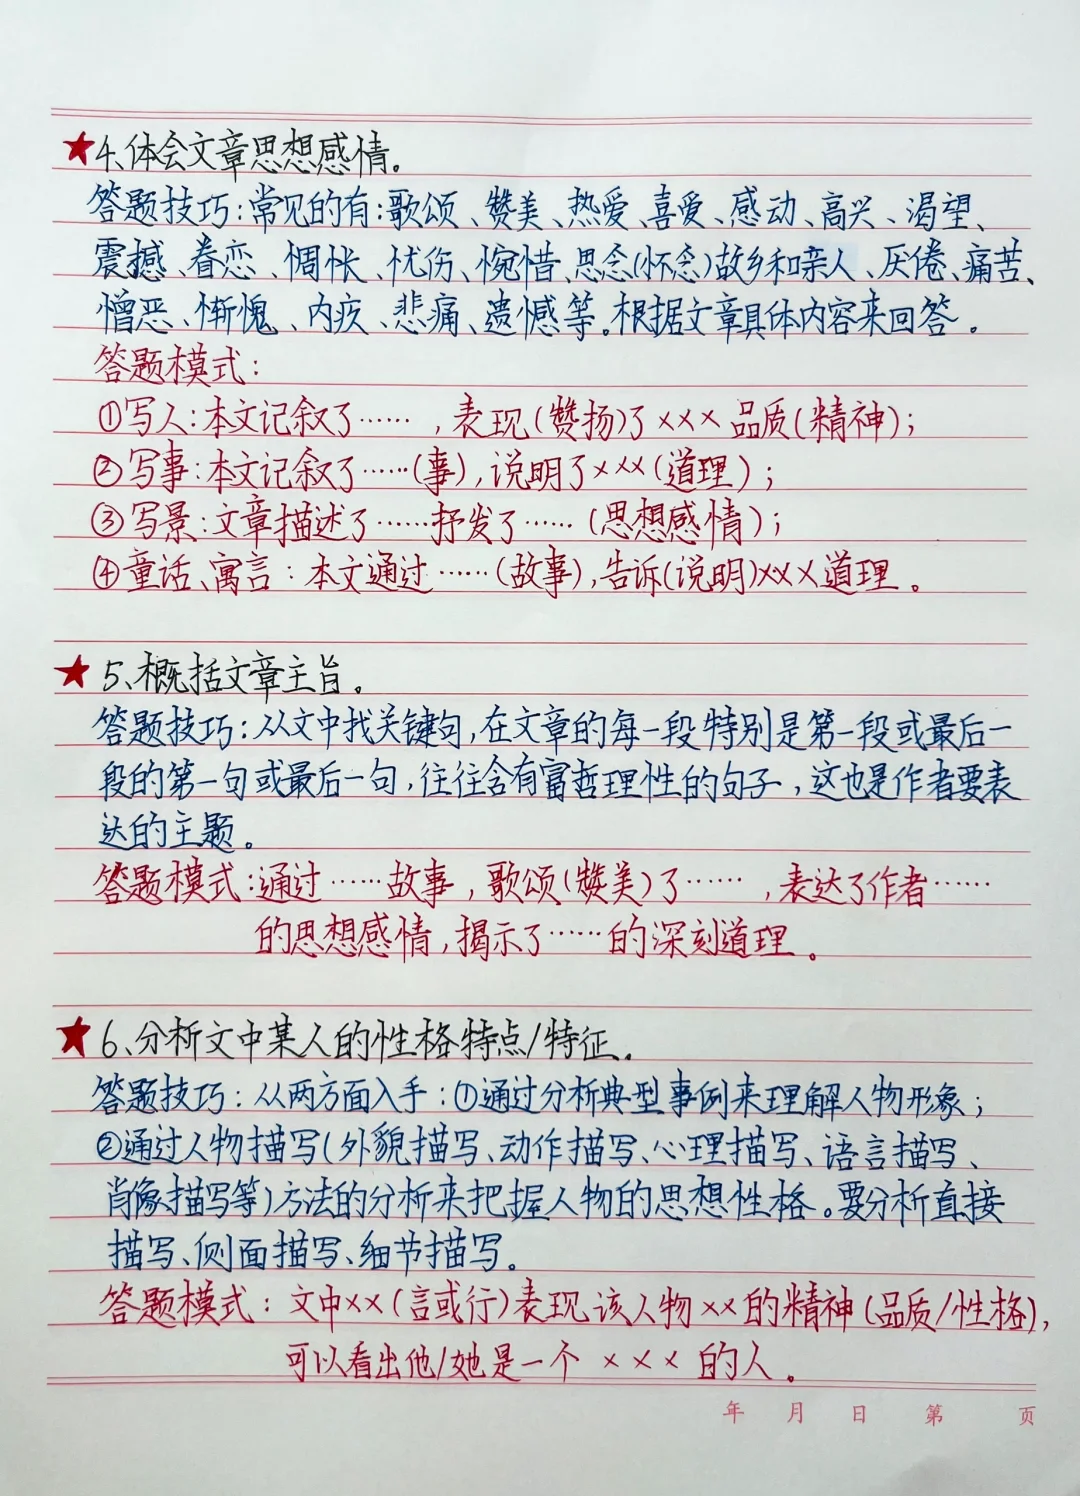 ★4、体会文章思想感情。
答题技巧:常见的有:歌颂、赞美、热爱、喜爱、感动、高兴、渴望、
震撼、眷恋、惆怅、忧伤、惋惜、思念(怀念)故乡和亲人、厌倦、痛苦、
憎恶、惭愧、内疚、悲痛、遗憾等。根据文章具体内容来回答。
答题模式:
①写人:本文记叙了……,表现(赞扬)了×××品质(精神);
②写事:本文记叙了……(事),说明了×××(道理);
③写景:文章描述了……抒发了……(思想感情);
④童话、寓言:本文通过……(故事),告诉(说明)×××道理。
★5、概括文章主旨。
答题技巧:从文中找关键句,在文章的每一段特别是第一段或最后一
段的第一句或最后一句,往往含有富哲理性的句子,这也是作者要表
达的主题。
答题模式:通过……故事,歌颂(赞美)了……,表达了作者……
的思想感情,揭示了……的深刻道理。
★6、分析文中某人的性格特点/特征。
答题技巧:从两方面入手:①通过分析典型事例来理解人物形象;
②通过人物描写(外貌描写、动作描写、心理描写、语言描写、
肖像描写等)方法的分析来把握人物的思想性格。要分析直接
描写、侧面描写、细节描写。
答题模式:文中××(言或行)表现该人物××的精神(品质/性格),
可以看出他/她是一个×××的人。
年 月 日 第 页